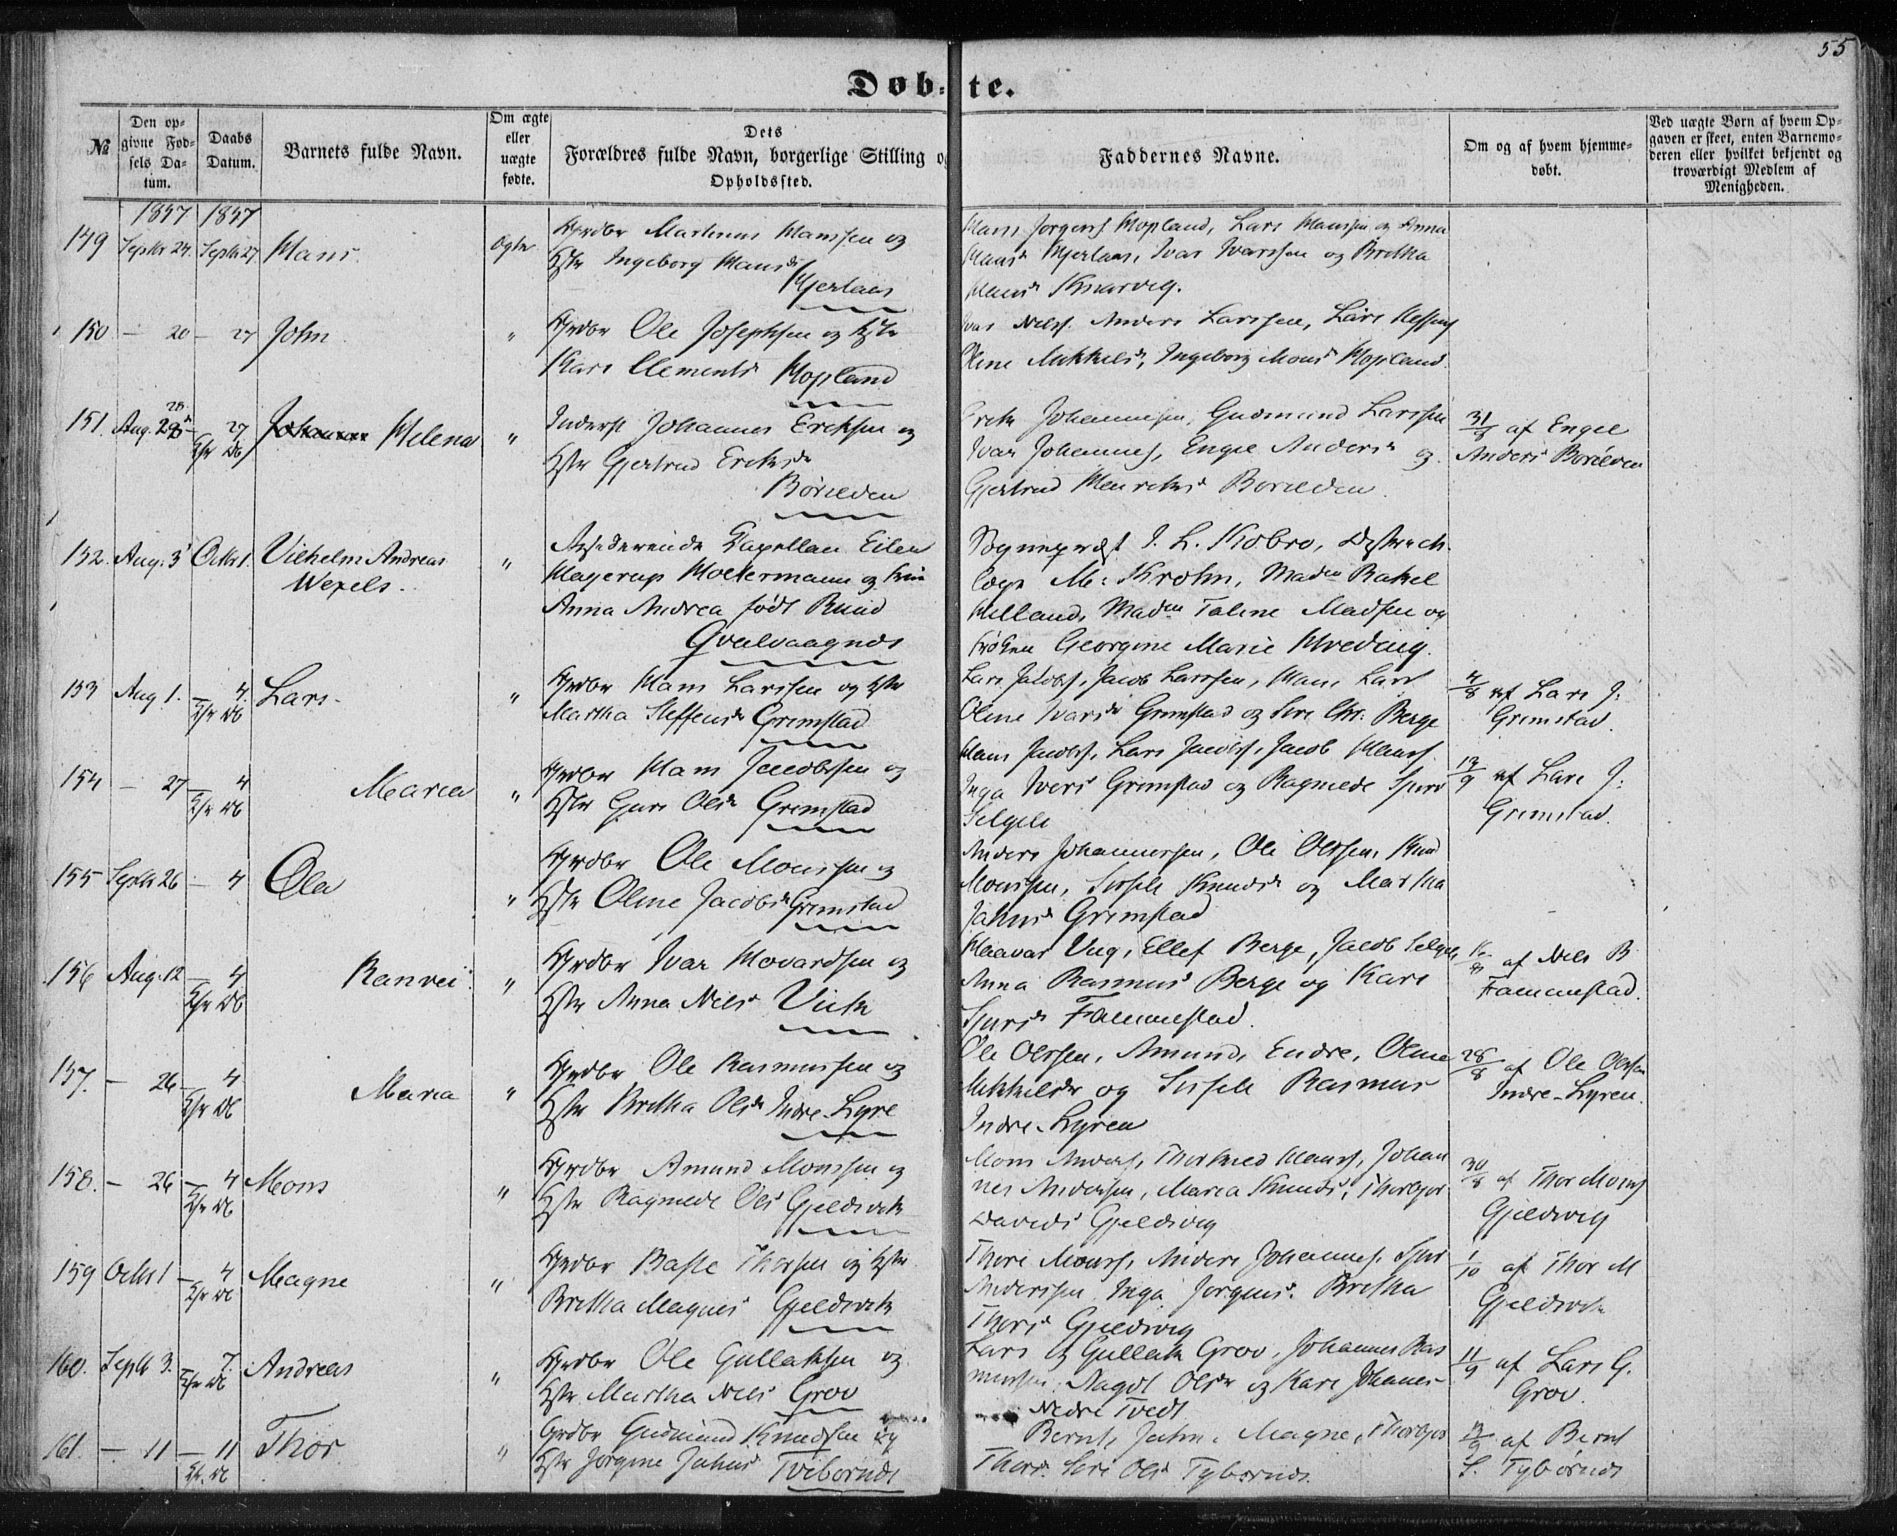 55
Døb- te.
№
Den op-
givne Fød-
sels Da-
tum.
Daabs
Datum.
Barnets fulde Navn.
Om ægte
eller
uægte
fødte.
Dets
Forældres fulde Navn, borgerlige Stilling og
Opholdssted.
Faddernes Navne.
Om og af hvem hjemme-
døbt.
Ved uægte Børn af hvem Op-
gaven er skeet, enten Barnemo-
deren eller hvilket bekjendt og
troværdigt Medlem af
Menigheden.
1857 1857
149 Septbr 24. Septbr 27 Hans
Ægte
Grdbr Martinus Hanssen og
Hstr Ingeborg Hansd
Hjertaas
Hans Jørgens Hopland, Lars Hanssen og Anna
Hansd Hjertaas, Ivar Ivarssen og Brithe
Hansd Knarvig.
150 — 20 — 27 John
"
Grdbr Ole Josephsen og Hstr
Kari Clementsd Hopland
Ivar Nilss. Anders Larssen, Lars
Mikkelsd, Ingeborg Monsd Hopland.
151. Aug. 28 — 27 Helena
"
Inderst Johannes Eriksen og
Hstr Gjertrud Eriksd
Børilden
Erik Johannesen, Gudmund Larssen
Ivar Johanness, Engel Andersd og
Gjertrud Henriksd Børilden.
31/8 af Engel
Anders Børilden
152. Aug. 3 Octbr 1. Vilhelm Andreas
Wexels.
"
Residerende Capellan Eiler
Hagerup Holtermann og
Anna Andrea født Buud
Qvalvaagnæs
Sogneprest J. L. Kobro, Distrects
læge M: Krohn, Madm Rakel
Helland, Madm Taline Madsen og
Frøken Georgine Marie Hveding.
153 Aug 1. — 4. Lars.
"
Grdbr Hans Larssen og Hstr
Martha Steffensd Grimstad
Lars Jacobs, Jacob Larssen, Hans Lars
Oline Ivarsd Grimstad og Siri Chr: Berge
4/8 af Lars J:
Grimstad.
154 — 27 — 4 Maria
"
Grdbr Hans Jacobsen og
Hstr Guri Olsd Grimstad
Hans Jacobs, Lars Jacobs, Jacob Hanss.
Inga Ivers Grimstad og Ragnilde
13/9 af Lars J:
Grimstad.
155 Septbr 26 — 4 Ola
"
Grdbr Ole Monssen og
Hstr Oline Jacobsd Grimstad
Anders Johannessen, Ole Olssen, Knud
Monssen, Sissele Knudsd og Martha
Grimstad
156 Aug. 12 — 4 Ranvei
"
Grdbr Ivar Hovardsen og
Hstr Anna Nelsd Vick
Haavar Vig, Ellef Berge, Jacob
Anna Rasmus Berge og Kari
Sjursd Fammestad.
af Nils B
Fammestad.
157. — 26 — 4 Maria
"
Grdbr Ole Rasmussen og
Hstr Britha Olsd Indre-Lyre
Ole Olssen, Amund, Endre, Oline
Mikkelsdr og Sissele Rasmus
Indre-Lyren
28/8 af Ole Olssen
Indre-Lyren.
158. — 26 — 4 Mons
"
Grdbr Amund Monssen og
Hstr Ragnilde Ols Gjeldsvik
Mons Anders, Hans, Johan
nes Anderssen, Maria Knuds, Thorbjør
Davids Gjeldsvig
30/8 af Thor Mons
Gjeldsvig
159 Octbr 1 — 4 Magne
"
Grdbr Baste Thorsen og Hstr
Britha Magnes Gjeldsvik
Thore Mons, Anders Johannes, Sjur
Anderssen, Inga Jørgens. Britha
Thors Gjeldsvig
1/10 af Thor M
Gjeldsvik
160. Septbr 3. — 7. Andreas
"
Grdbr Ole Gullaksen og
Hstr Martha Nels Grov
Lars og Gullak Grov, Johannes Ras
mussen, Olsd og Kari Johanes
Nedre Tvedt
11/9 af Lars G.
Grov.
161. — 11 — 11 Thor
"
Grdbr Gudmund Knudsen og
Hstr Jørgine Tvibornds
Bernt, John, Magne, Thorbjør
Thors. Siri Ols Tybornds.
af Bernt
S. Tybørnds